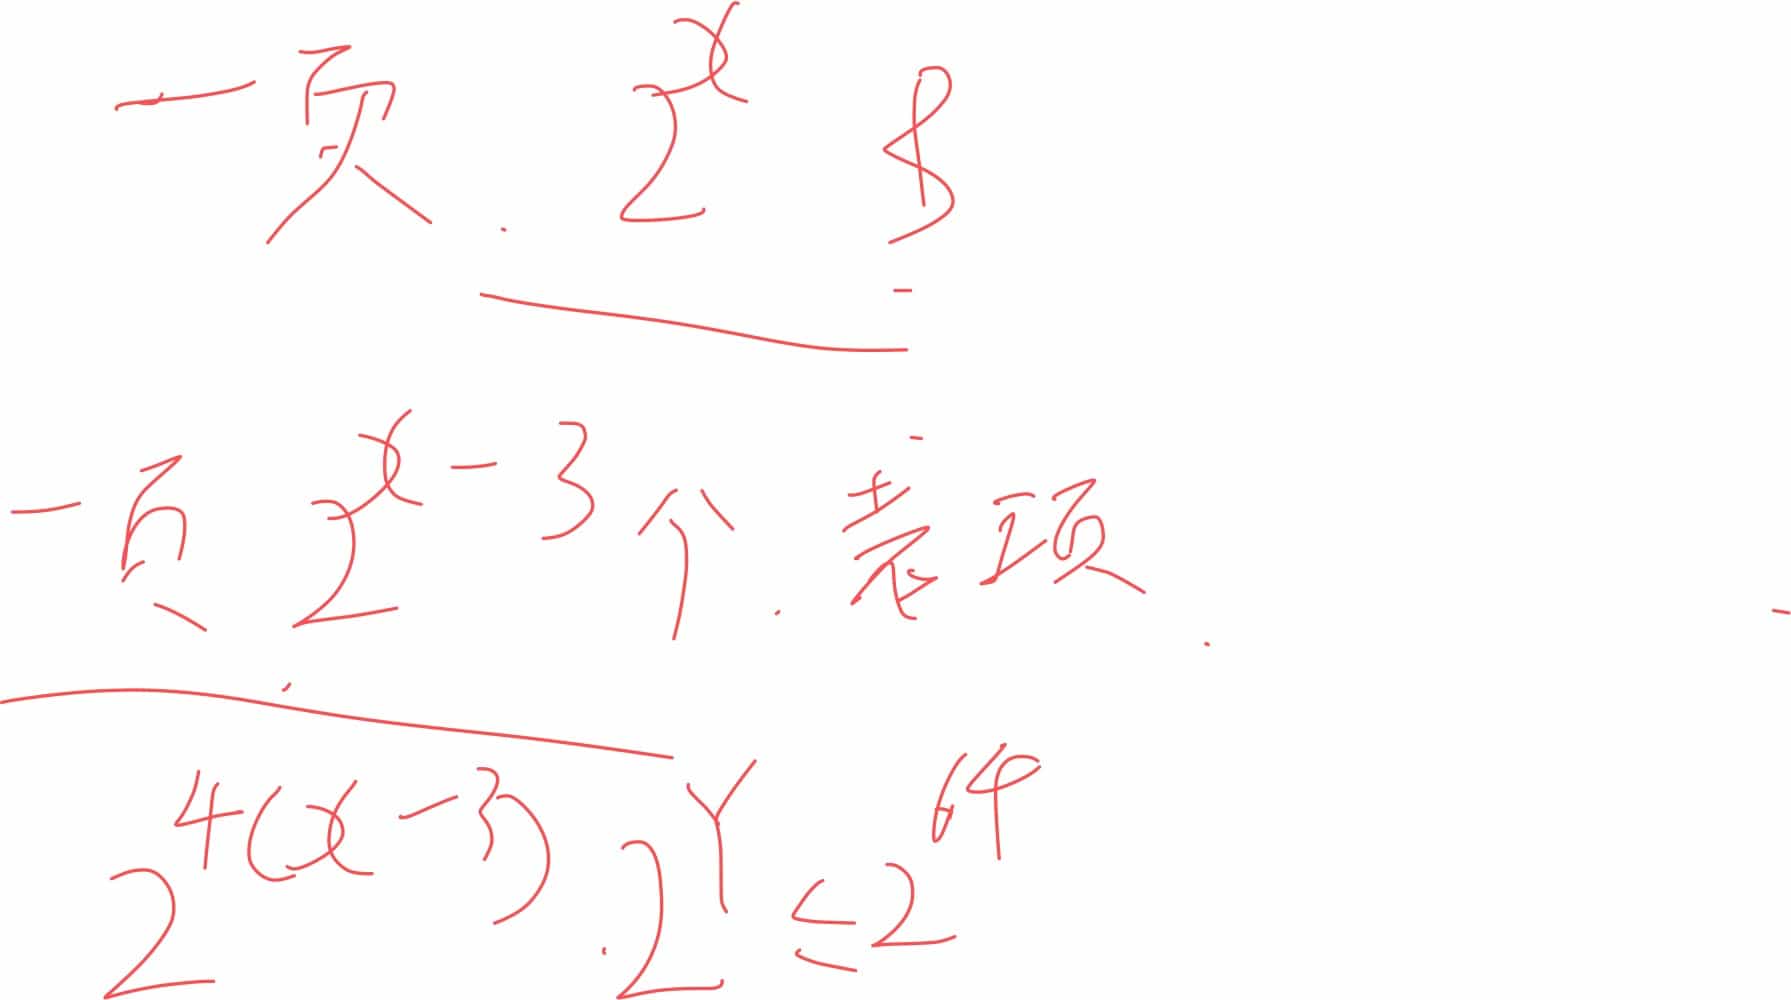 一页. 2^x B
一页 2^{x-3}个. 表项.
2^{4(x-3)}·2^Y ≤ 2^{64}